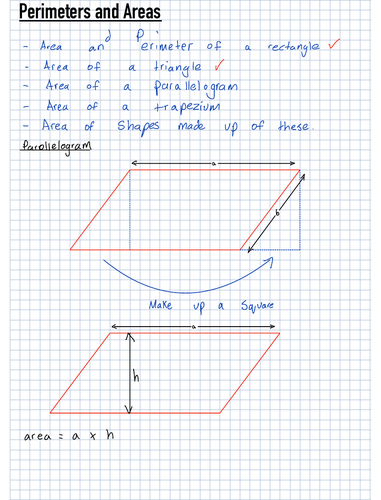 Perimeters and Areas
- Area and Perimeter of a rectangle ✓
- Area of a triangle ✓
- Area of a parallelogram
- Area of a trapezium
- Area of Shapes made up of these.
Parallelogram
a
b
Make up a Square
a
h
area = a x h